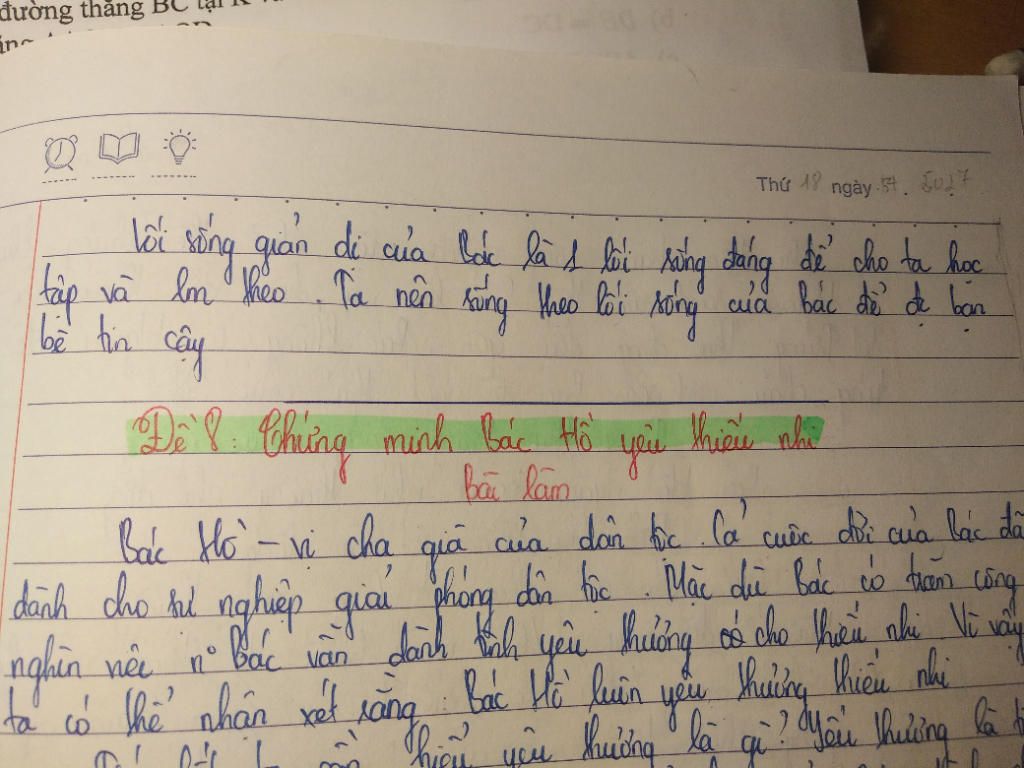 đường thẳng BC tại K
b) DB = DC
Thứ 18 ngày 5027
Lối sống giản dị của Bác là 1 lối sống đáng để cho ta học
tập và lm theo. Ta nên sống theo lối sống của bác để đc bạn
bè tin cậy
Đề 8: Chứng minh Bác Hồ yêu thiếu nhi
bài làm
Bác Hồ - vị cha già của dân tộc. Cả cuộc đời của Bác đã
dành cho sự nghiệp giải phóng dân tộc. Mặc dù Bác có trăm công
nghìn việc n° Bác vẫn dành tình yêu thương cho thiếu nhi Vì vậy
ta có thể nhận xét rằng: Bác Hồ luôn yêu thương thiếu nhi
hiểu yêu thương là gì? Yêu thương là